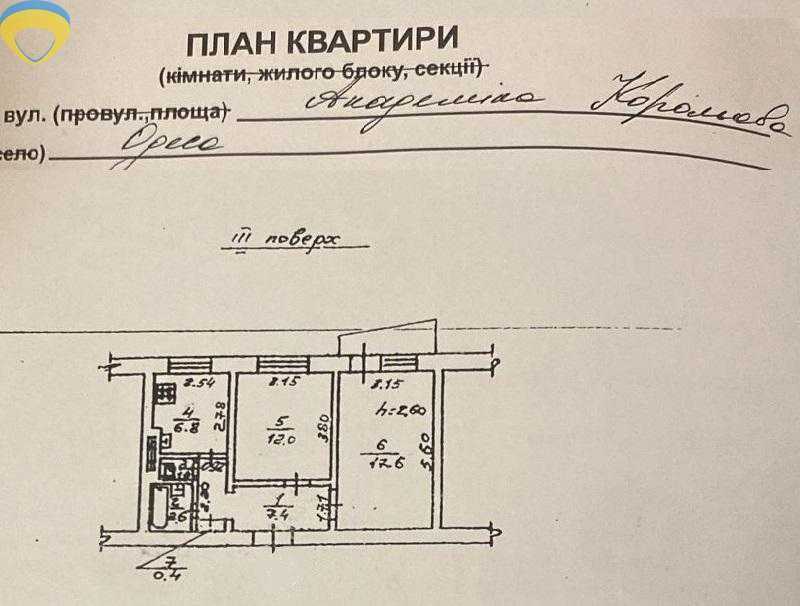 ПЛАН КВАРТИРИ
(кімнати, жилого блоку, секції)
вул. (провул.,площа) Академіка Корольова
село) Одеса
III поверх
2.54
3.15
3.15
4
6.8
2.78
5
12.0
3.80
h=2,60
6
17.6
5.60
2.80
1
7.4
1.71
7
0.4